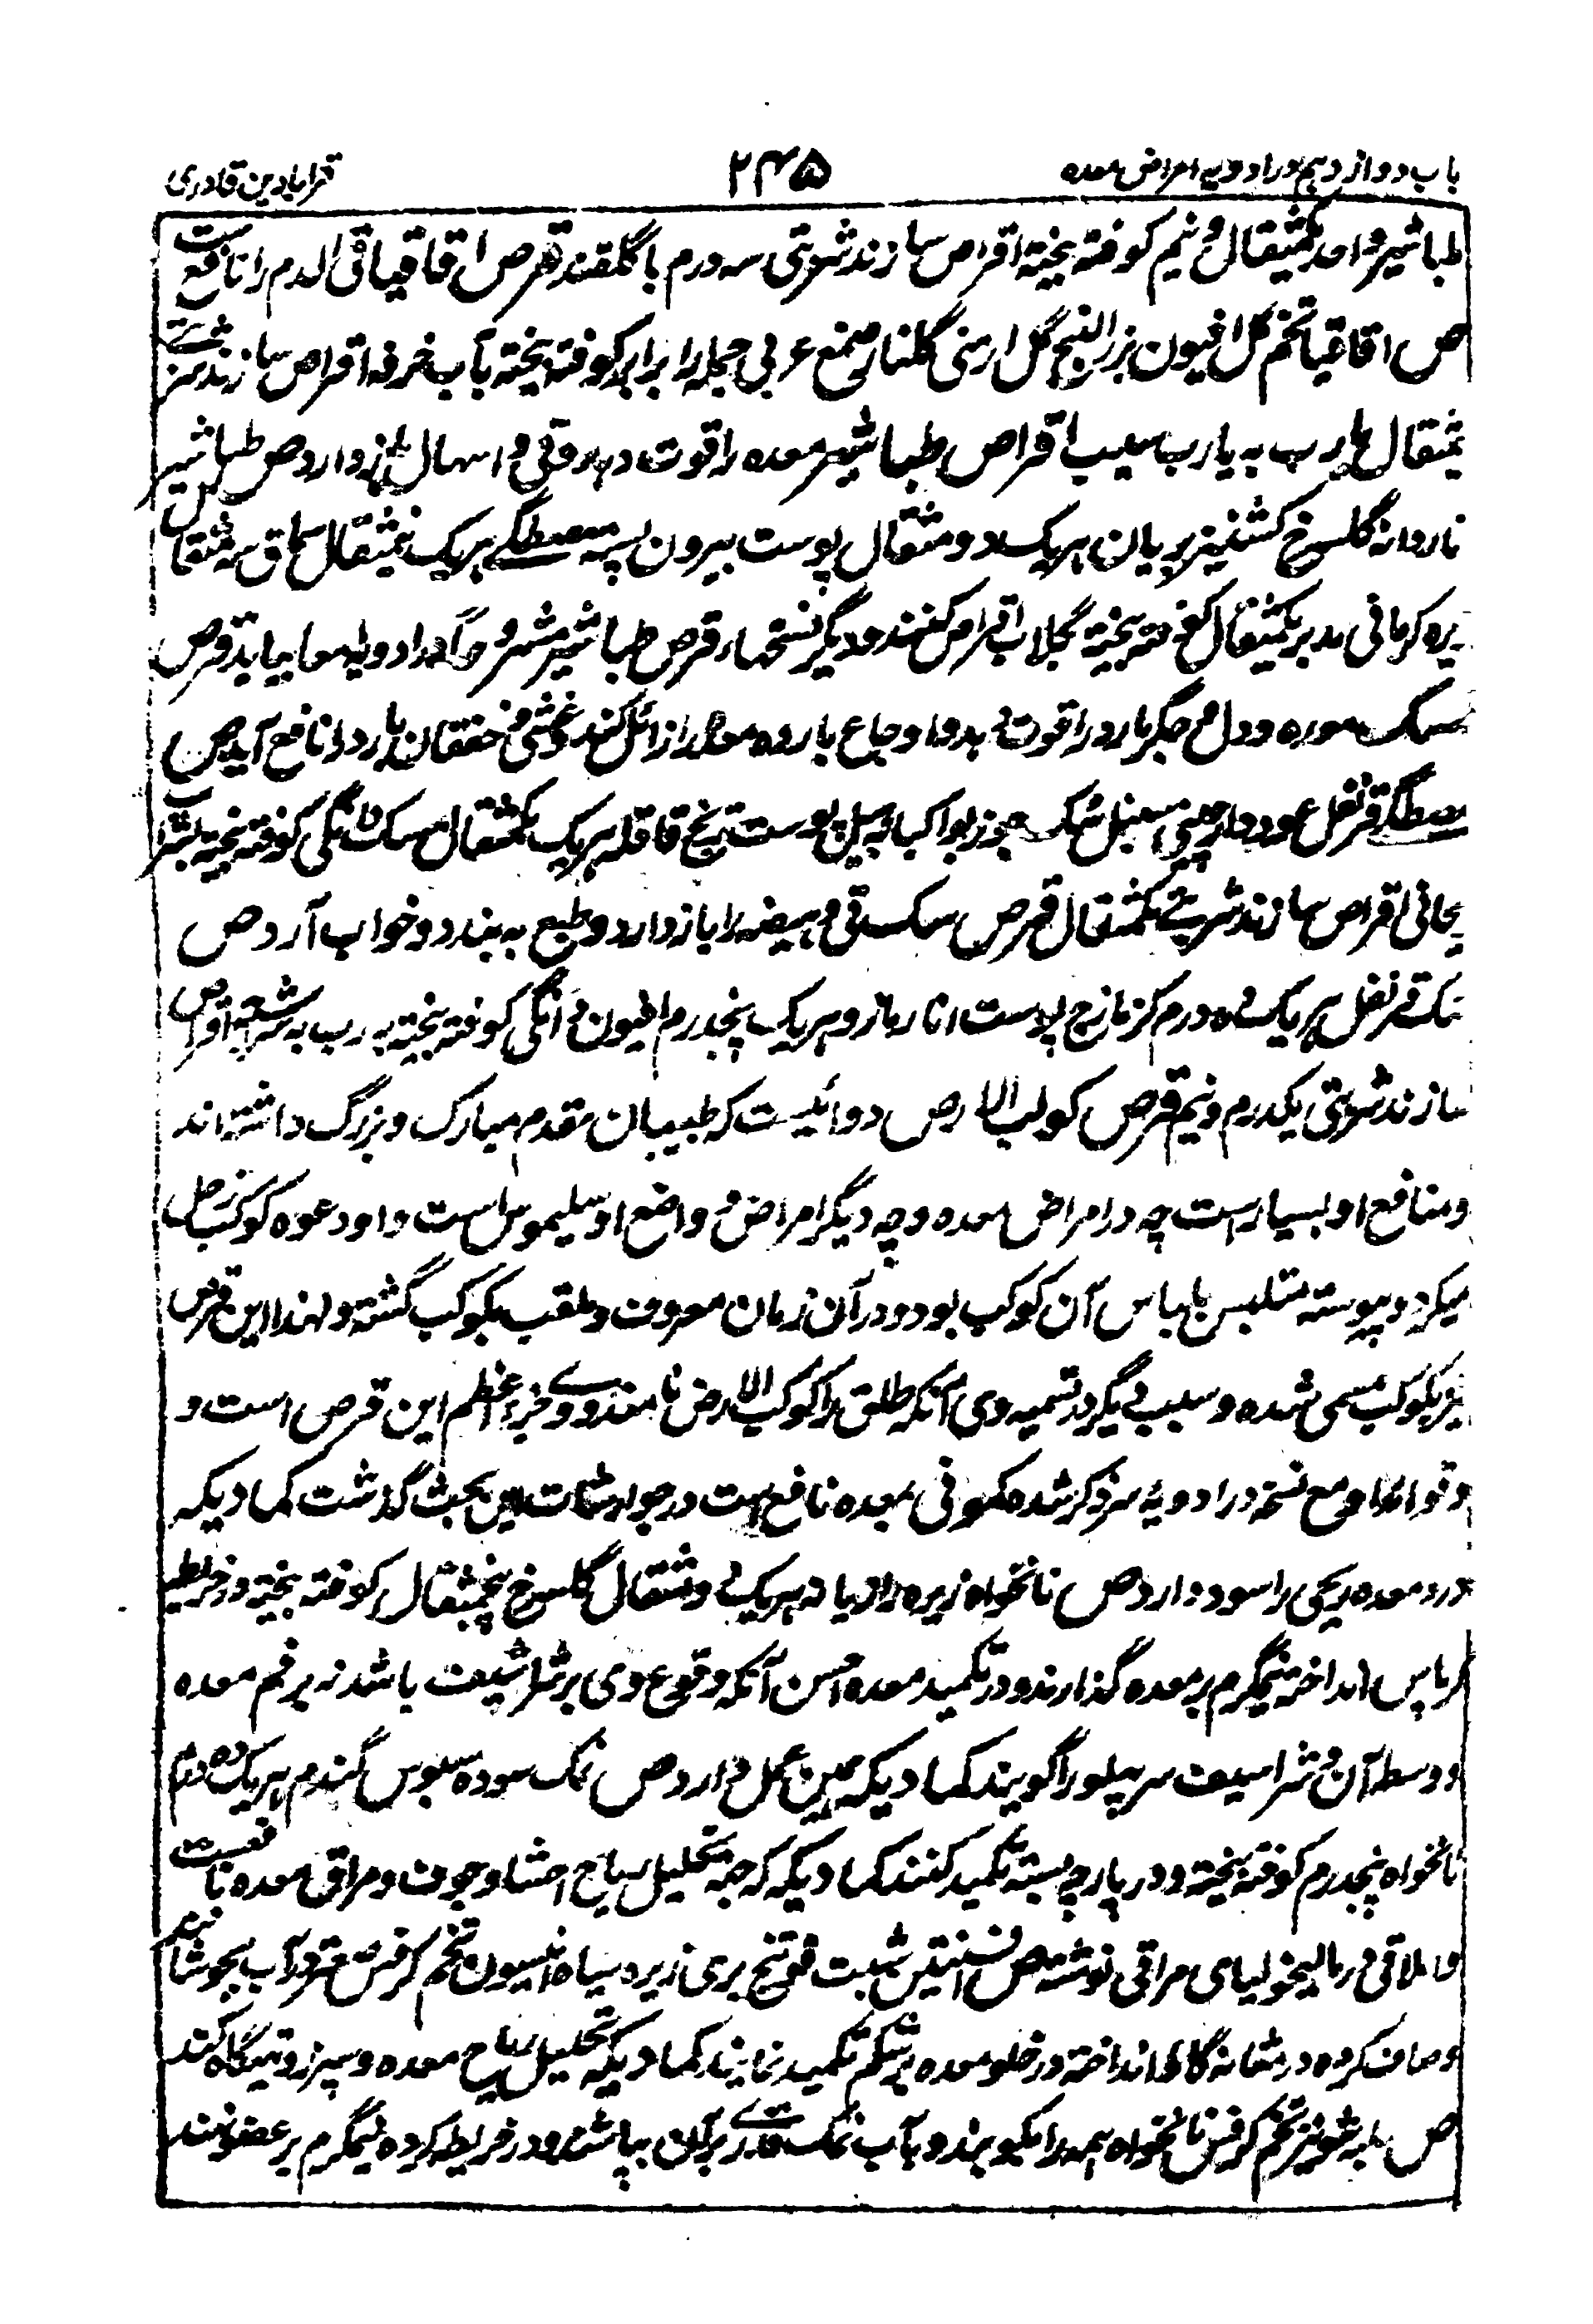 باب دوازدهم در ادویه امراض معده ۲۴۵ قرابادین قادری
طباشیر واحد یکمثقال و نیم کوفته بیخته اقراص سازند شربتی سه درم با گلقند قرص اقاقیا قی الدم را نافع ست
ص اقاقیا تخم گل افیون بزرالبنج گل ارمنی گلنار صمغ عربی جمله را برابر کوفته بیخته بآب خرفه اقراص سازند شربتے
مثقال با رب به یا رب سیب اقراص طباشیر معده را قوت دهد و قی و اسهال باز دارد ص طباشیر
ناردانه گلسرخ کشنیز بریان هریک دو مثقال پوست بیرون پسته مصطگے هریک نیمثقال سماق سه مثقال
یره کرمانی مدبر یکمثقال کوفته بیخته بگلاب اقراص کنند و دیگر نسخهاء قرص طباشیر مشروحاً در ادویه امعا بیاید قرص
سک معده و دل و جگر بارد را قوت دهد و اوجاع بارده معده را زائل کند و غشی و خفقان بارد را نافع آید ص
مصطگے قرنفل عود دارچینی سنبل سک جوزبوا کبابه هیل پوست ترنج قاقله هریک یکمثقال مسک دانگی کوفته بیخته بشراب
یحانی اقراص سازند شربتے یکمثقال قرص سک قی و هیضه را باز دارد و طبع به بندد و خواب آرد ص
سک قرنفل هریک ده درم کزمازج پوست انار مازو هریک پنجدرم افیون دانگی کوفته بیخته به رب به سرشته اقراص
سازند شربتی یکدرم و نیم قرص کوکب الارض دوائیست که طبیبان مقدم مبارک و بزرگ داشته اند
و منافع او بسیارست چه در امراض معده و چه دیگر امراض و واضع او سلیموس است و او دعوه کوکب زحل
میکرد و پیوسته متلبس بلباس آن کوکب بود و در آن زمان معروف و ملقب بکوکب گشته و لهذا این قرص
نیز بکوکب مسمی شده و سبب دیگر در تسمیه وی آنکه طلق را کوکب الارض نامند و وے جزء اعظم این قرص است و
و فوائد او مع نسخه در ادویه سر ذکر شده کمونی معده نافع است در جوارشات این بحث گذشت کماد یکه
درد معده ریحی را سود دارد ص نانخواه زیره رازیانه هریک دو مثقال گلسرخ پنجمثقال کوفته بیخته در خریطه
کرباس انداخته نیمگرم بر معده گذارند و در تکمید معده احسن آنکه وقوع وی بر شراسیف باشد نه بر فم معده
و وسط آن و شراسیف سر پهلو را گویند کماد یکه همین عمل دارد ص نمک سوده سبوس گندم هریک ده درم
نانخواه پنجدرم کوفته بیخته و در پارچه بسته تکمید کنند کماد یکه که جهة تحلیل ریاح احشا و جوف و مراق معده نافعست
و املاقی در مالیخولیای مراقی نوشته ص افسنتین شبت فوتنج بری زیره سیاه انیسون تخم کرفس صعتر در آب بجوشانند
و صاف کرده در مثانه گاو انداخته در خلو معده بر شکم تکمید نمایند کماد یکه تحلیل ریاح معده و سپرز و تهیگاه کند
ص سداب شونیز تخم کرفس نانخواه همه را بکوبند و بآب نمک قدرے بر آن بپاشند و در خریطه کرده نیمگرم بر عضو نهند